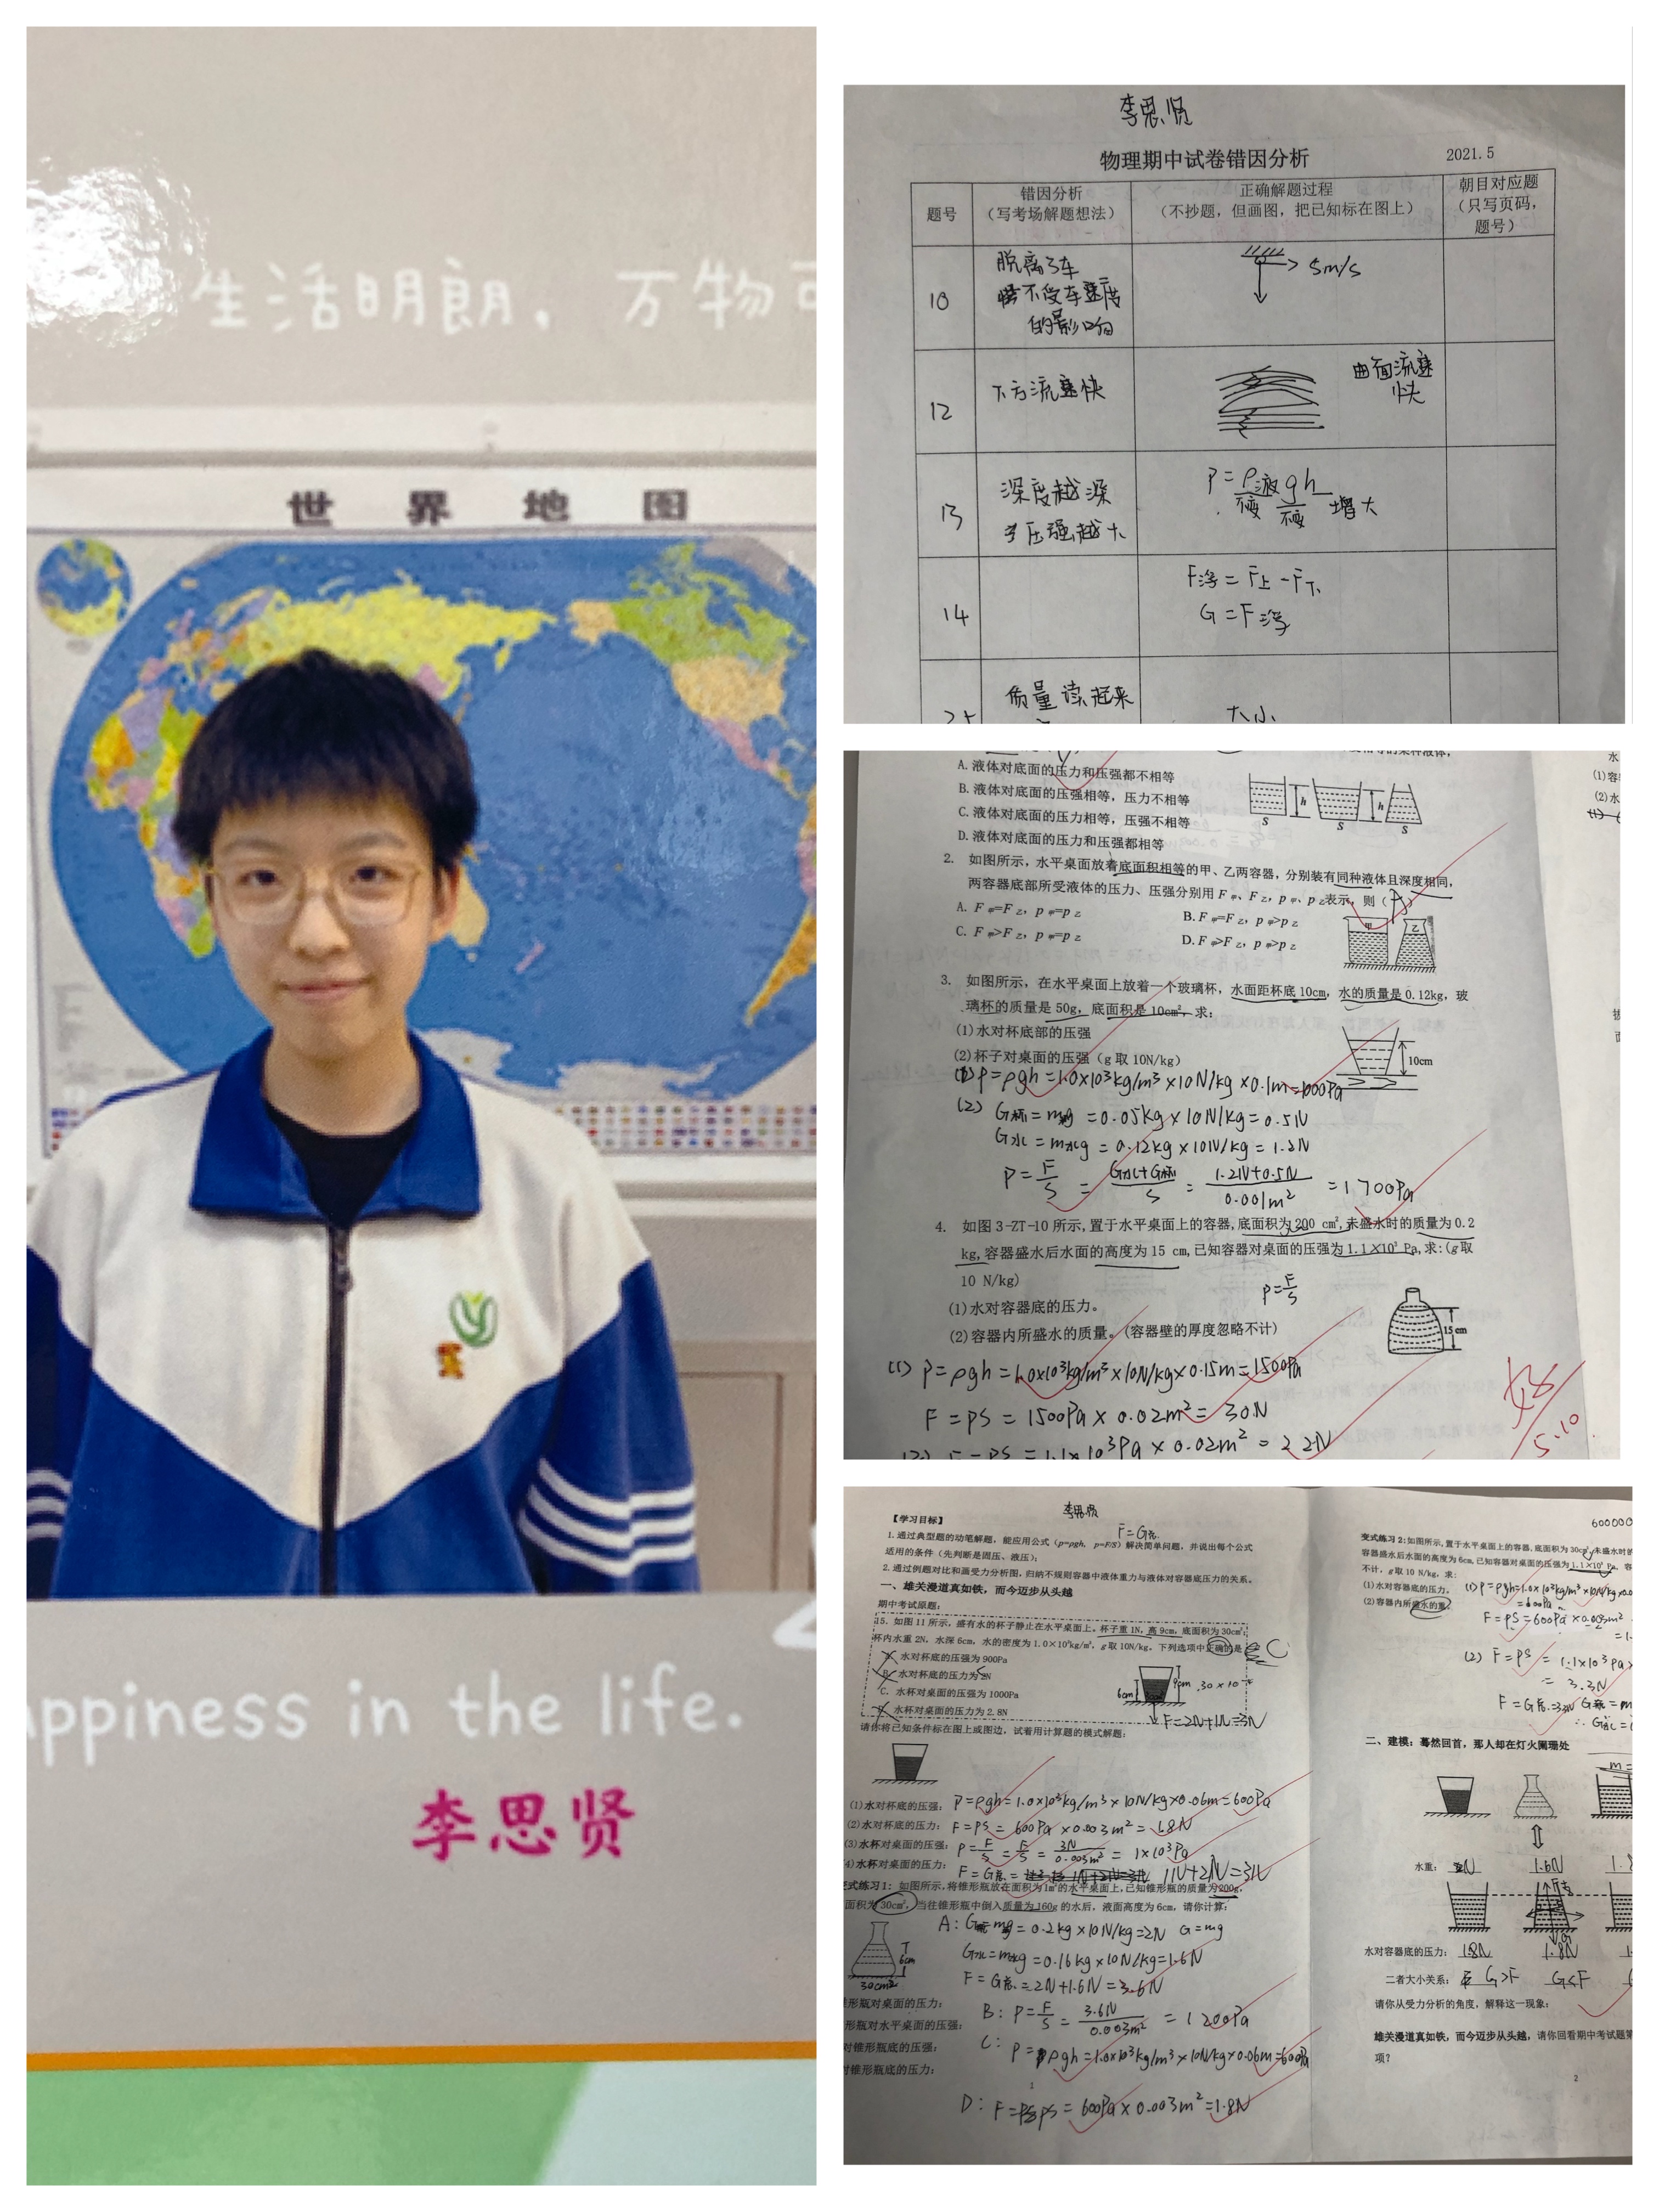 生活明朗，万物可
世界地图
appiness in the life.
李思贤
李思贤
物理期中试卷错因分析 2021.5
题号
错因分析
（写考场解题想法）
正确解题过程
（不抄题，但画图，把已知标在图上）
朝目对应题
（只写页码，
题号）
10
脱离了车
不受车速度
的影响
5m/s
12
下方流速快
曲面流速
快
13
深度越深
压强越大
P=ρ液gh
不变 不变 增大
14
F浮=F上-F下
G=F浮
质量读起来
大小
A. 液体对底面的压力和压强都不相等
B. 液体对底面的压强相等，压力不相等
C. 液体对底面的压力相等，压强不相等
D. 液体对底面的压力和压强都相等
h h
S S S
2. 如图所示，水平桌面放着底面积相等的甲、乙两容器，分别装有同种液体且深度相同，
两容器底部所受液体的压力、压强分别用 F甲、F乙，p甲、p乙表示，则（A）
A. F甲=F乙，p甲=p乙 B. F甲=F乙，p甲>p乙
C. F甲>F乙，p甲=p乙 D. F甲>F乙，p甲>p乙
甲 乙
3. 如图所示，在水平桌面上放着一个玻璃杯，水面距杯底10cm，水的质量是0.12kg，玻
璃杯的质量是50g，底面积是10cm²，求：
(1)水对杯底部的压强
(2)杯子对桌面的压强（g取10N/kg）
10cm
(1)P=ρgh=1.0×10³kg/m³×10N/kg×0.1m=1000Pa
(2) G杯=mg=0.05kg×10N/kg=0.5N
G水=m水g=0.12kg×10N/kg=1.2N
P=F/S=(G水+G杯)/S=(1.2N+0.5N)/0.001m²=1700Pa
4. 如图3-ZT-10所示,置于水平桌面上的容器,底面积为200 cm²,未盛水时的质量为0.2
kg,容器盛水后水面的高度为15 cm,已知容器对桌面的压强为1.1×10³ Pa,求:(g取
10 N/kg)
P=F/S
(1)水对容器底的压力。
(2)容器内所盛水的质量。(容器壁的厚度忽略不计)
15 cm
(1) P=ρgh=1.0×10³kg/m³×10N/kg×0.15m=1500Pa
F=PS=1500Pa×0.02m²=30N
F=PS=1.1×10³Pa×0.02m²=22N
好
5.10
李思贤
【学习目标】
F=G总
1. 通过典型题的动笔解题，能应用公式（p=ρgh, p=F/S）解决简单问题，并说出每个公式
适用的条件（先判断是固压、液压）；
2. 通过例题对比和画受力分析图，归纳不规则容器中液体重力与液体对容器底压力的关系。
一、雄关漫道真如铁，而今迈步从头越
期中考试原题：
15. 如图11所示，盛有水的杯子静止在水平桌面上。杯子重1N，高9cm，底面积为30cm²；
杯内水重2N，水深6cm，水的密度为1.0×10³kg/m³，g取10N/kg。下列选项中正确的是 C
A. 水对杯底的压强为900Pa
B. 水对杯底的压力为2N
C. 水杯对桌面的压强为1000Pa
D. 水杯对桌面的压力为2.8N
6cm 9cm
F=2N+1N=3N
请你将已知条件标在图上或图边，试着用计算题的模式解题：
(1)水对杯底的压强：P=ρgh=1.0×10³kg/m³×10N/kg×0.06m=600Pa
(2)水对杯底的压力：F=PS=600Pa×0.003m²=1.8N
(3)水杯对桌面的压强：P=F/S=F/S=3N/0.003m²=1×10³Pa
(4)水杯对桌面的压力：F=G总=1N+2N=3N
变式练习1：如图所示，将锥形瓶放在面积为1m²的水平桌面上，已知锥形瓶的质量为200g，
面积为30cm²，当往锥形瓶中倒入质量为160g的水后，液面高度为6cm，请你计算：
6cm
30cm²
A: G瓶=mg=0.2kg×10N/kg=2N G=mg
G水=m水g=0.16kg×10N/kg=1.6N
F=G总=2N+1.6N=3.6N
形瓶对桌面的压力：
形瓶对水平桌面的压强：
B: P=F/S=3.6N/0.003m²=1200Pa
对锥形瓶底的压强：
C: P=ρgh=1.0×10³kg/m³×10N/kg×0.06m=600Pa
对锥形瓶底的压力：
D: F=PS=600Pa×0.003m²=1.8N
1
变式练习2:如图所示,置于水平桌面上的容器,底面积为30cm²,未盛水时的
容器盛水后水面的高度为6cm,已知容器对桌面的压强为1.1×10³ Pa,
不计,g取10 N/kg,求:
(1)水对容器底的压力。
(2)容器内所盛水的重。
(1)P=ρgh=1.0×10³kg/m³×10N/kg×0.0
=600Pa
F=PS=600Pa×0.003m²
(2) F=PS=1.1×10³Pa×
=3.3N
F=G总=3.3N
二、建模：蓦然回首，那人却在灯火阑珊处
水重： 2N 1.6N
水对容器底的压力： 1.8N 1.8N
二者大小关系： G>F G<F
请你从受力分析的角度，解释这一现象：
雄关漫道真如铁，而今迈步从头越，请你回看期中考试题第
项？
2